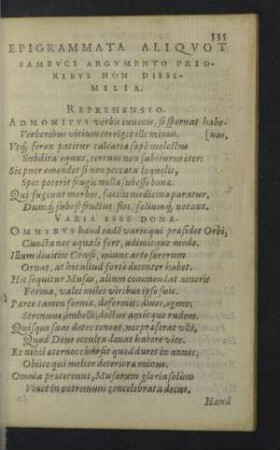 335
EPIGRAMMATA ALIQVOT
SAMBVCI ARGVMENTO PRIO-
RIBVS NON DISSI-
MILIA.
REPREHENSIO.
ADMONITVS verbis iuuenis, si spernat habe-
Verberibus vitium corriget ille minus. [nas,
Vtq́, ferox patitur calcaria sæpè molestus
Subdita equus, rectum non subiturus iter:
Sic puer emendes si non peccata loquelis,
Spes poterit frugis nulla subesse bonæ.
Qui fugiunt morbos, facilis medicina paratur,
Dumq́, subest fructus, flos, foliumq́, notant.
VARIA ESSE DONA.
OMNIBVS haud eadē variaqui præsidet Orbi,
Cuncta nec æquali fert, adimitque modo.
Illum diuitiæ Cræsi, minus arte
Ornat, at hic aliud fortè decenter habet.
Hic sequitur Musas, alium commendat amoris
Forma, valet miles viribus ipse suis.
Parce tamen formæ, deformis; diues, egeno;
Strenuus, imbelli; doctus amicque rudem.
Quisque suas dotes teneat, nec præferat vlli,
Quod Deus occulta donat habere vice.
Et nihil æternos quod duret in annos,
Obiicequi melior deteriora minus.
Omnia prætereunt, Musarum gloria solùm
Viuet in extremum concelebrata decus.
Haud